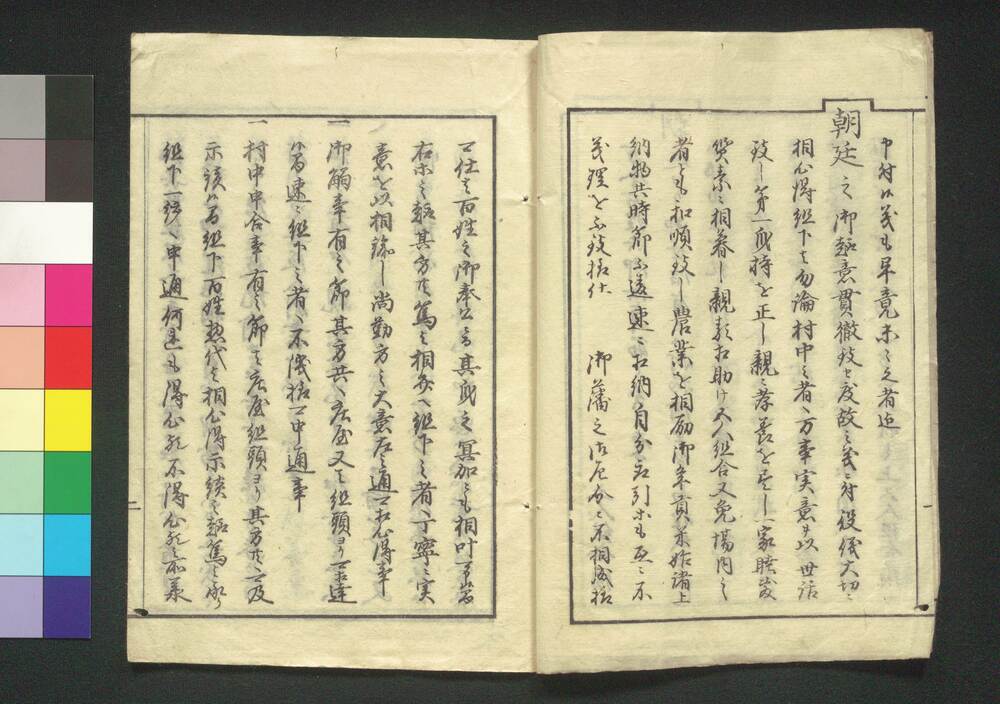 申付候義も早竟末々之者迄
朝廷之御趣意貫徹致シ度故之義ニ付役儀大切ニ
相心得組下は勿論村中之者ニ万事実意ヲ以世話
致し第一身持を正し親ニ孝養を尽し一家睦敷
質素ニ相暮し親類相助ケ五人組合又免場内之
者とも和順致し農業を相励御年貢米始諸上
納物共時節不遅速ニ相納自分割引等も互ニ不
義理を不致様仕 御藩之御厄介ニ不相成様
可仕は百姓之御奉公其身之冥加ニも相叶可申
右等之趣其方共篤と相弁へ組下之者へ丁寧ニ実
意を以相諭し尚勤方之大意左之通可相心得事
一 御触事有之節其方共へ庄屋又は組頭ヨリ可達
候間速ニ組下之者へ不洩様可申通事
一 村中申合事有之節は庄屋組頭ヨリ其方共へ可及
示談候間組下百姓惣代と相心得示談之趣篤と承り
組下一統へ申通何連も得心欤不得心欤之処承